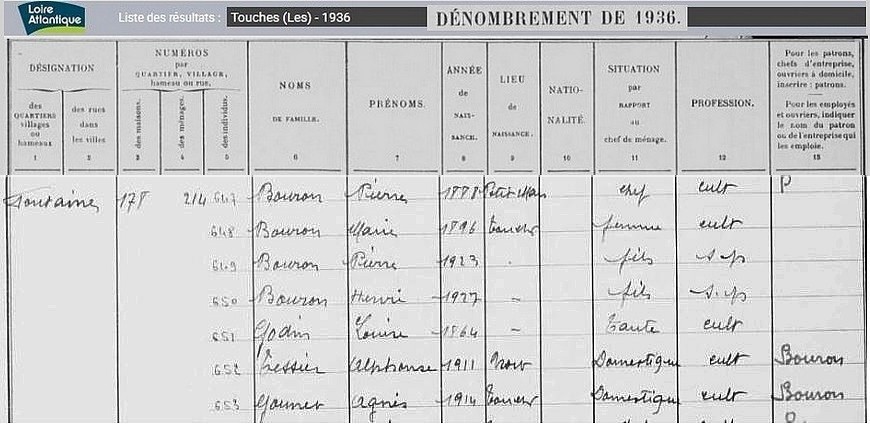 Loire
Atlantique
Liste des résultats : Touches (Les) - 1936
DÉNOMBREMENT DE 1936.
DÉSIGNATION
des QUARTIERS villages ou hameaux
des rues dans les villes
NUMÉROS par QUARTIER, VILLAGE, hameau ou rue.
des maisons.
des ménages.
des individus.
NOMS DE FAMILLE.
PRÉNOMS.
ANNÉE de NAISSANCE.
LIEU de NAISSANCE.
NATIO-NALITÉ.
SITUATION par RAPPORT au chef de ménage.
PROFESSION.
Pour les patrons, chefs d'entreprise, ouvriers à domicile, inscrire : patrons.
Pour les employés et ouvriers, indiquer le nom du patron ou de l'entreprise qui les emploie.
1 2 3 4 5 6 7 8 9 10 11 12 13
Fontaines 178 214 647 Bouron Pierre 1888 Petit Mars chef cult P
648 Bouron Marie 1896 Touches femme cult
649 Bouron Pierre 1923 " fils s.p
650 Bouron Henri 1927 - fils s.p
651 Godin Louise 1864 - tante cult
652 Tessier Alphonse 1911 Domestique cult Bouron
653 Agnès 1914 Touches Domestique cult Bouron